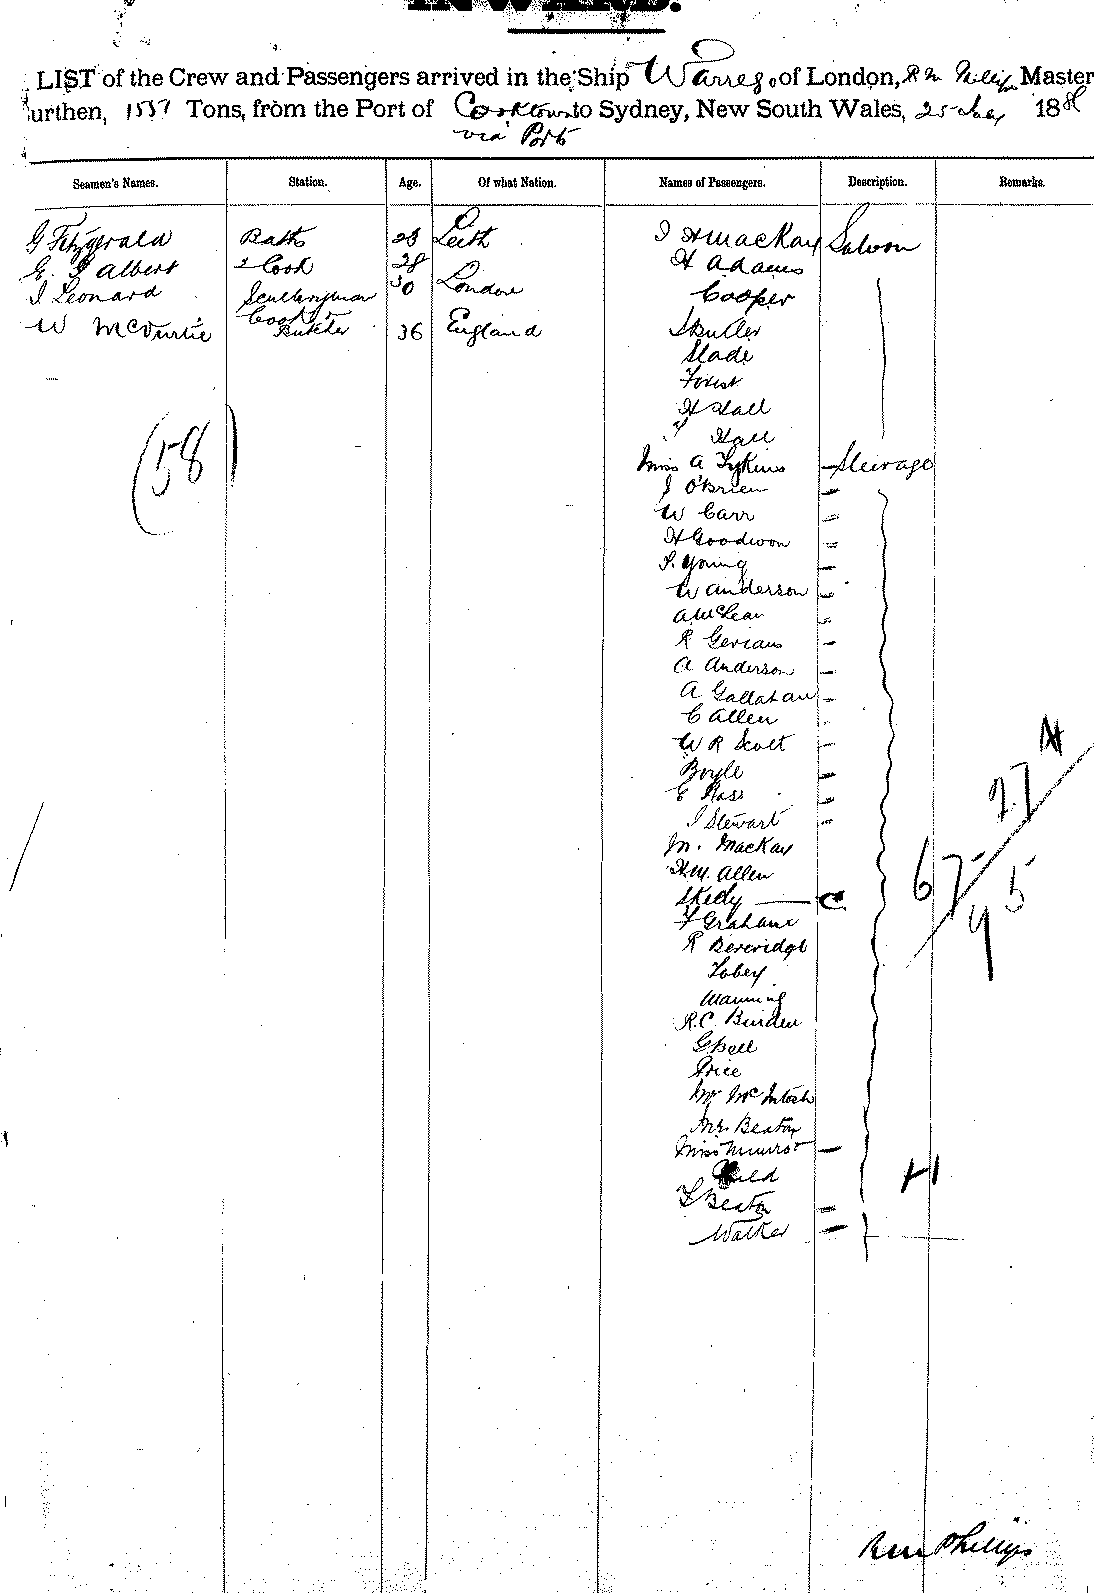 INWARD.
LIST of the Crew and Passengers arrived in the Ship Warrego of London, R M Phillips Master
urthen, 1557 Tons, from the Port of Cooktown to Sydney, New South Wales, 25 July 188
via Ports
Seamen's Names. Station. Age. Of what Nation. Names of Passengers. Description. Remarks.
G Fitzgerald Baths 28 Leith J H MacKay Saloon
G. J Albert 2 Cook 28 H Adams
J Leonard Sculleryman 30 London Cooper
W McDurtie Cook & Butcher 36 England S Butler
Slade
Forest
H Hall
Hall
(58)
Miss A Lykins Steerage
J O'Brien
W Carr
H Goodwon
S. Young
W Anderson
A McLean
R Gericans
A Anderson
A Gallahan
C Allen
W R Scott
Boyle
E Ross
J Stewart
M. MacKay
H.M. Allen
Skedy C
F Grahame
R Bereridge
Tobey
Manning
R.C. Burden
G Bell
Price
Mr McIntosh
Mr. Beaton
Miss Munro
Child
L Beaton
Walker
27
67
95
R M Phillips